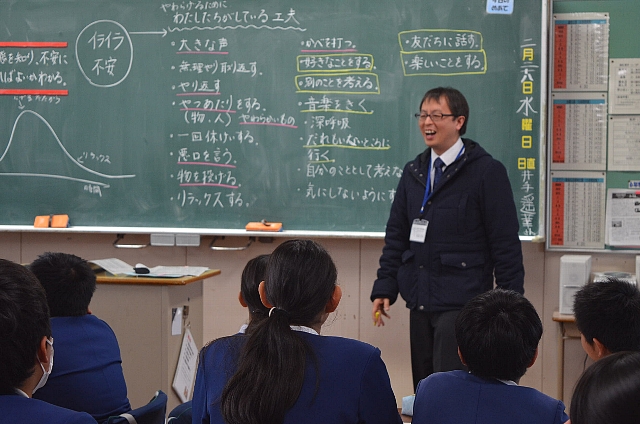 やわらげるために
わたしたちがしている工夫
イライラ
不安
を知り、不安に
ばよいかわかる。
リラックス
時間
・大きな声
・無理やり取り返す。
・やり返す
・やつあたりをする。
(物、人) やわらかいもの
・一回休けいする。
・悪口を言う。
・物を投げる。
・リラックスする。
・かべを打つ。
・好きなことをする。
・別のことを考える。
・音楽をきく
・深呼吸
・だれもいないところに
行く。
・自分のこととして考えな
・気にしないようにす
・友だちに話す。
・楽しいことをする。
二月二六日水曜日
日直